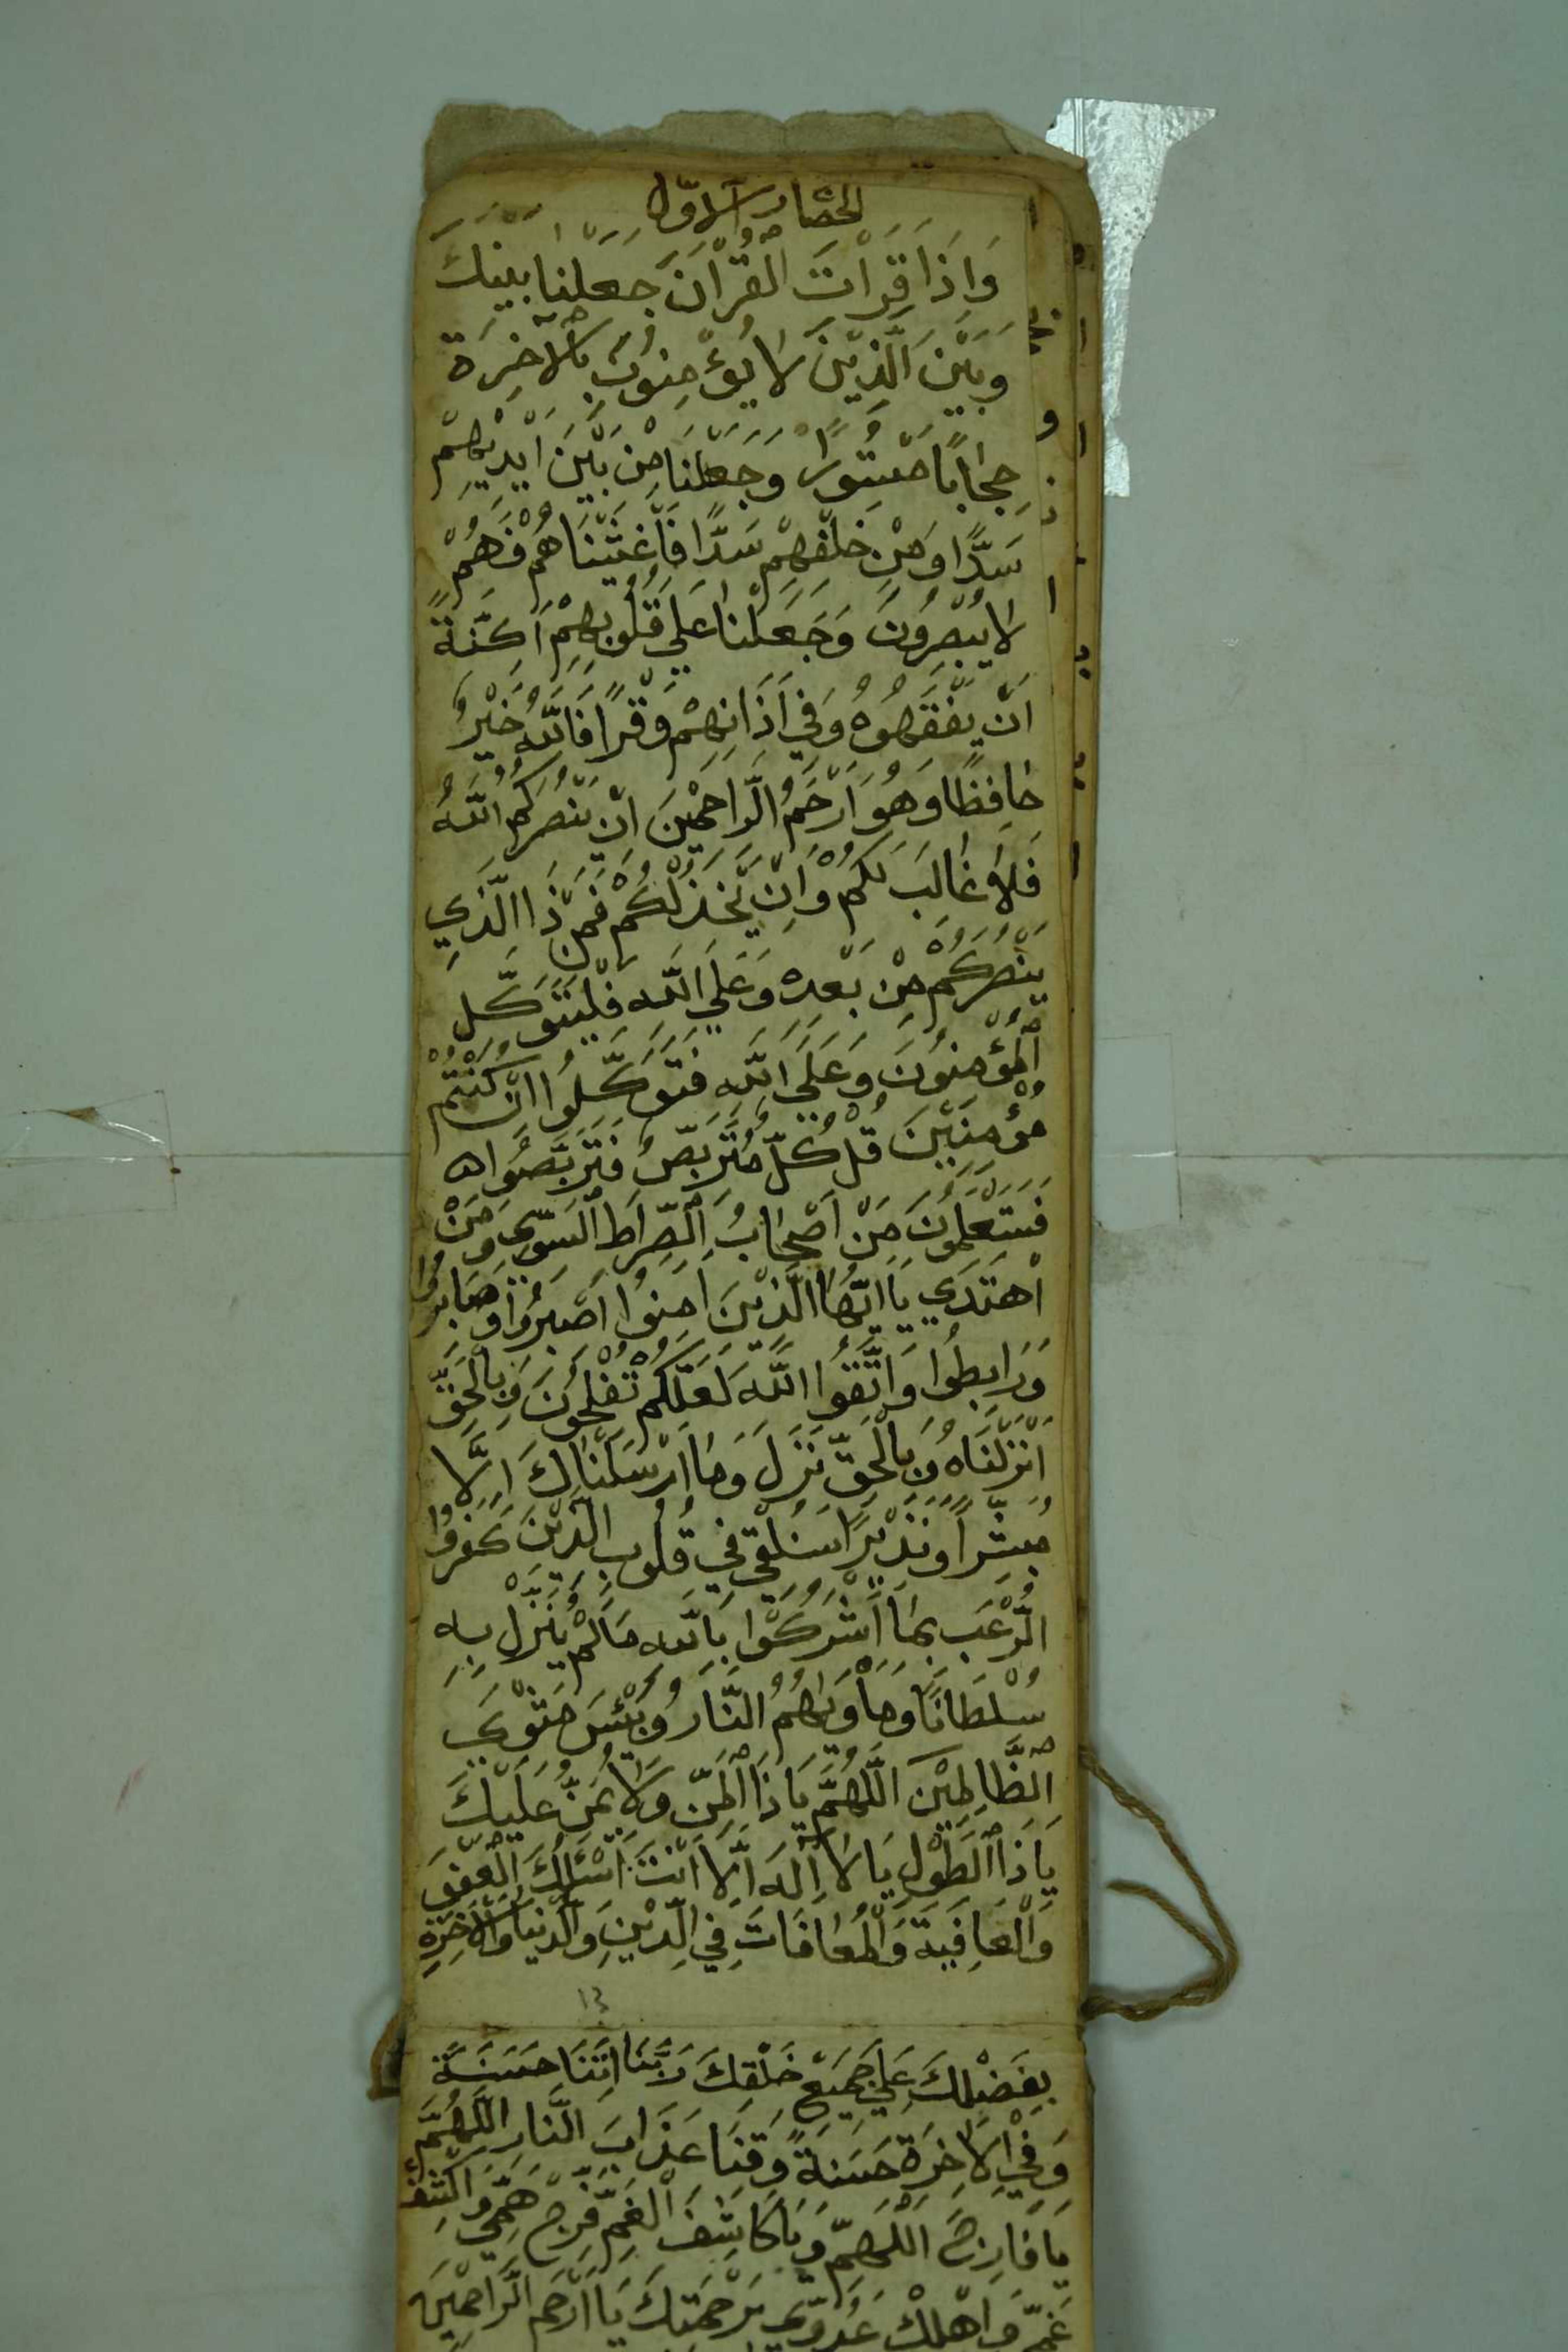 الحصار الاوّل
وَاِذَا قَرَاْتَ الْقُرْاٰنَ جَعَلْنَا بَيْنَكَ
وَبَيْنَ الَّذِيْنَ لَا يُؤْمِنُوْنَ بِالْاٰخِرَةِ
حِجَابًا مَسْتُوْرًا وَجَعَلْنَا مِنْ بَيْنِ اَيْدِيْهِمْ
سَدًّا وَمِنْ خَلْفِهِمْ سَدًّا فَاَغْشَيْنَاهُمْ فَهُمْ
لَا يُبْصِرُونَ وَجَعَلْنَا عَلٰي قُلُوْبِهِمْ اَكِنَّةً
اَنْ يَفْقَهُوْهُ وَفِي اٰذَانِهِمْ وَقْرًا فَاللّٰهُ خَيْرٌ
حَافِظًا وَهُوَ اَرْحَمُ الرَّاحِمِيْنَ اِنْ يَنْصُرْكُمُ اللّٰهُ
فَلَا غَالِبَ لَكُمْ وَاِنْ يَّخْذُلْكُمْ فَمَنْ ذَا الَّذِي
يَنْصُرُكُمْ مِنْ بَعْدِهِ وَعَلَي اللّٰهِ فَلْيَتَوَكَّلِ
الْمُؤْمِنُوْنَ وَعَلَي اللّٰهِ فَتَوَكَّلُوا اِنْ كُنْتُمْ
مُؤْمِنِيْنَ قُلْ كُلٌّ مُتَرَبِّصٌ فَتَرَبَّصُوْا
فَسَتَعْلَمُوْنَ مَنْ اَصْحَابُ الصِّرَاطِ السَّوِيِّ وَمَنْ
اهْتَدَي يَا اَيُّهَا الَّذِيْنَ اٰمَنُوا اصْبِرُوْا وَصَابِرُوْا
وَرَابِطُوْا وَاتَّقُوا اللّٰهَ لَعَلَّكُمْ تُفْلِحُوْنَ وَبِالْحَقِّ
اَنْزَلْنَاهُ وَبِالْحَقِّ نَزَلَ وَمَا اَرْسَلْنَاكَ اِلَّا
مُبَشِّرًا وَنَذِيْرًا سَنُلْقِي فِي قُلُوْبِ الَّذِيْنَ كَفَرُوْا
الرُّعْبَ بِمَا اَشْرَكُوْا بِاللّٰهِ مَا لَمْ يُنَزِّلْ بِهِ
سُلْطَانًا وَمَاْوٰيهُمُ النَّارُ وَبِئْسَ مَثْوَي
الظَّالِمِيْنَ اَللّٰهُمَّ يَا ذَا الْمَنِّ وَلَا يُمَنُّ عَلَيْكَ
يَا ذَا الطَّوْلِ يَا لَا اِلٰهَ اِلَّا اَنْتَ اَسْئَلُكَ الْعَفْوَ
وَالْعَافِيَةَ وَالْمُعَافَاتَ فِي الدِّيْنِ وَالدُّنْيَا وَالْاٰخِرَةِ
١٣
بِفَضْلِكَ عَلٰي جَمِيْعِ خَلْقِكَ رَبَّنَا اٰتِنَا حَسَنَةً
وَفِي الْاٰخِرَةِ حَسَنَةً وَقِنَا عَذَابَ النَّارِ اَللّٰهُمَّ
يَا فَارِجَ الْهَمِّ وَيَا كَاشِفَ الْغَمِّ فَرِّجْ هَمِّي وَاكْشِفْ
غَمِّي وَاَهْلِكْ عَدُوِّي بِرَحْمَتِكَ يَا اَرْحَمَ الرَّاحِمِيْنَ